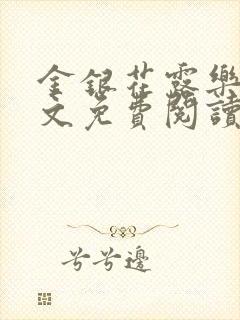 金銀花露樂
文免費閱讀
兮兮邊